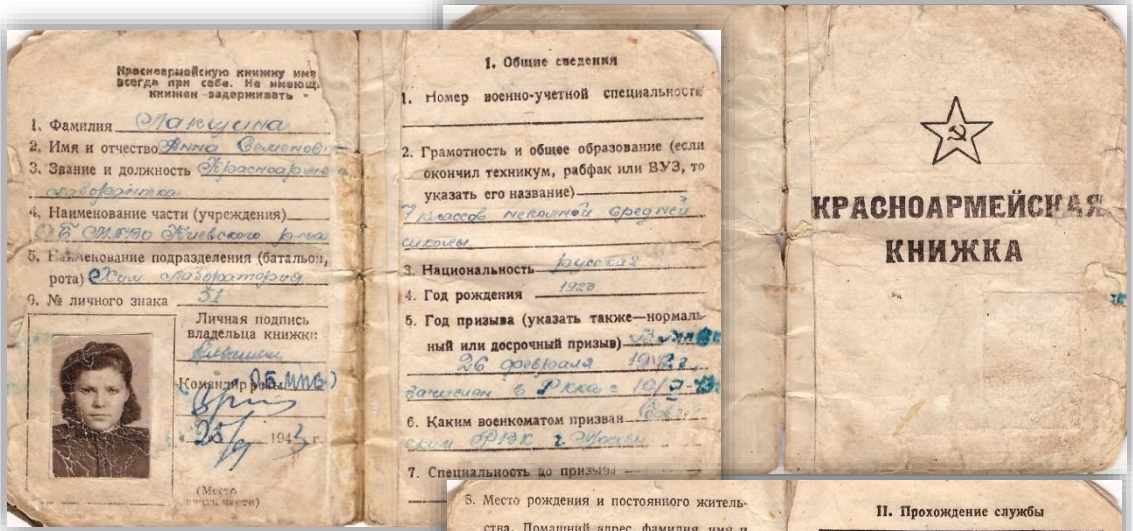 Красноармейскую книжку име
всегда при себе. Не имеющ.
книжек – задерживать
1. Фамилия Лакшина
2. Имя и отчество Анна Семенов
3. Звание и должность Красноарме
лаборантка
4. Наименование части (учреждения)
ОБ МПВО Киевского р-на
5. Наименование подразделения (батальон,
рота) Хим лаборатория
6. № личного знака 51
Личная подпись
владельца книжки:
Командир роты (ОБ МПВО)
25/9 1943 г.
(Место
части)
I. Общие сведения
1. Номер военно-учетной специальности
2. Грамотность и общее образование (если
окончил техникум, рабфак или ВУЗ, то
указать его название)
7 классов неполной средней
школы
3. Национальность русская
4. Год рождения 1923
5. Год призыва (указать также—нормаль-
ный или досрочный призыв)
26 февраля 1942 г.
зачислен в РККА с
6. Каким военкоматом призван
РВК г.
7. Специальность до призыва
КРАСНОАРМЕЙСКАЯ
КНИЖКА
8. Место рождения и постоянного житель-
ства. Домашний адрес, фамилия, имя и
II. Прохождение службы